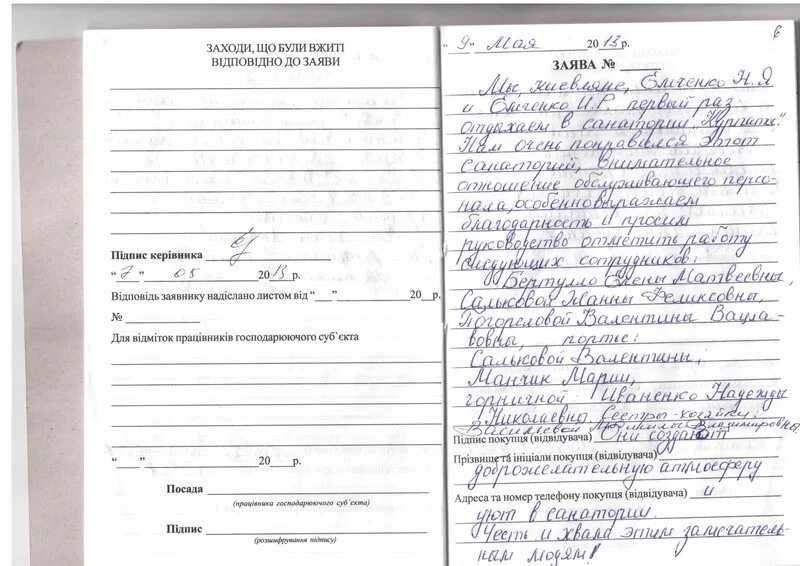 ЗАХОДИ, ЩО БУЛИ ВЖИТІ
ВІДПОВІДНО ДО ЗАЯВИ
Підпис керівника
“ 7 ” 05 2013 р.
Відповідь заявнику надіслано листом від “___” ____________ 20__р.
№ ____________
Для відміток працівників господарюючого суб`єкта
“____” ____________ 20___р.
Посада
(працівника господарюючого суб`єкта)
Підпис
(розшифрування підпису)
6
“ 9 ” Мая 2013 р.
ЗАЯВА № ______
Мы, киевляне, Емченко Н.Я
и Емченко И.Р. первый раз
отдыхаем в санатории „Курпаты."
Нам очень понравился этот
санаторий, внимательное
отношение обслуживающего персо-
нала, особенно выражаем
благодарность и просим
руководство отметить работу
следующих сотрудников:
Бертулло Елены Матвеевны,
Сальковой Жанны Феликсовны,
Погореловой Валентины Вацла-
вовны, портье:
Сальковой Валентины,
Манчик Марии,
горничной: Иваненко Надежды
Николаевны Сестры-хозяйки:
Васильевой Людмилы Владимировны
Підпис покупця (відвідувача) Они создают
Прізвище та ініціали покупця (відвідувача)
доброжелательную атмосферу
Адреса та номер телефону покупця (відвідувача) и
уют в санатории.
Честь и хвала этим замечатель-
ным людям!